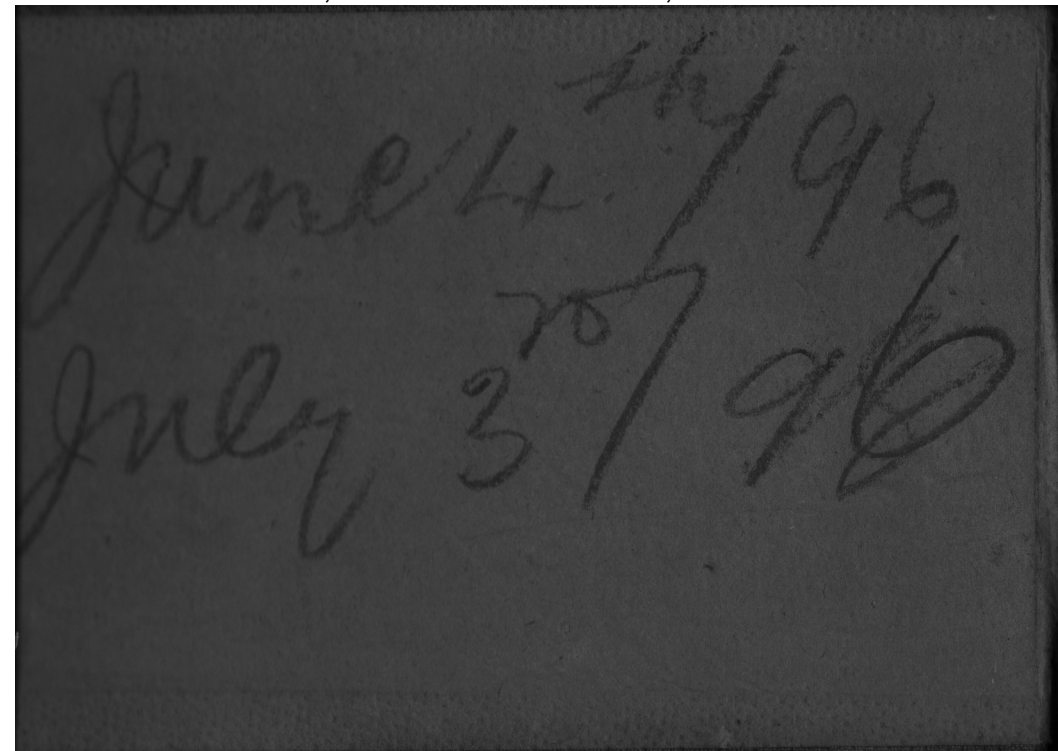 June 4.th/96
July 3rd/96